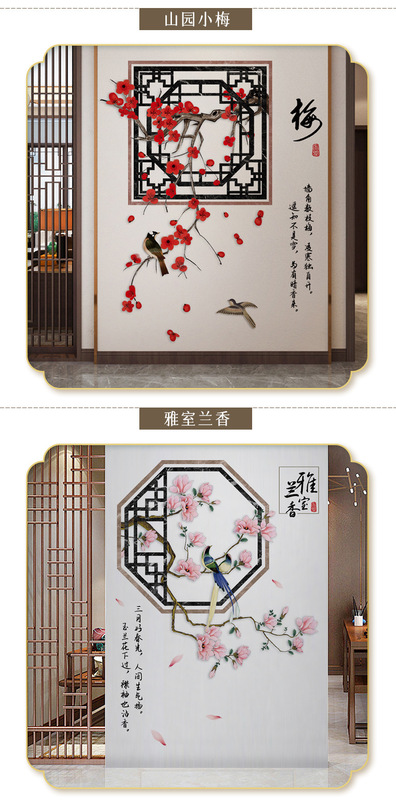 山园小梅
梅
墙角数枝梅，凌寒独自开。
遥知不是雪，为有暗香来。
雅室兰香
雅室
兰香
三月好春光，人间生气物。
玉兰花下过，襟袖也沾香。